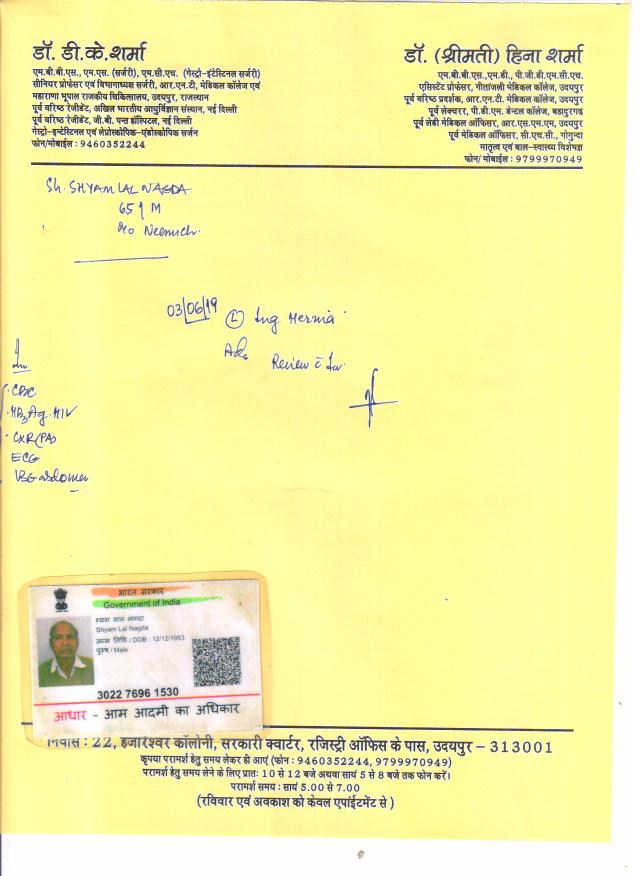 डॉ. डी.के.शर्मा
एम.बी.बी.एस., एम.एस. (सर्जरी), एम.सी.एच. (गेस्ट्रो-इंटेस्टिनल सर्जरी)
सीनियर प्रोफेसर एवं विभागाध्यक्ष सर्जरी, आर.एन.टी. मेडिकल कॉलेज एवं
महाराणा भूपाल राजकीय चिकित्सालय, उदयपुर, राजस्थान
पूर्व वरिष्ठ रेजीडेंट, अखिल भारतीय आयुर्विज्ञान संस्थान, नई दिल्ली
पूर्व वरिष्ठ रेजीडेंट, जी.बी. पन्त हॉस्पिटल, नई दिल्ली
गेस्ट्रो-इन्टेस्टिनल एवं लेप्रोस्कोपिक-एंडोस्कोपिक सर्जन
फोन/मोबाईल : 9460352244
डॉ. (श्रीमती) हिना शर्मा
एम.बी.बी.एस.,एम.डी., पी.जी.डी.एम.सी.एच.
एसिस्टेंट प्रोफेसर, गीतांजली मेडिकल कॉलेज, उदयपुर
पूर्व वरिष्ठ प्रदर्शक, आर.एन.टी. मेडिकल कॉलेज, उदयपुर
पूर्व लेक्चरर, पी.डी.एम. डेन्टल कॉलेज, बहादुरगढ़
पूर्व लेडी मेडिकल ऑफिसर, आर.एस.एम.एम, उदयपुर
पूर्व मेडिकल ऑफिसर, सी.एच.सी., गोगुन्दा
मातृत्व एवं बाल-स्वास्थ्य विशेषज्ञ
फोन/ मोबाईल : 9799970949
Sh. SHYAM LAL NAGDA
65 / M
R/o Neemuch.
03/06/19 (L) Ing Hernia
Adv Review c Inv.
Inv
CBC
HBsAg. HIV
CXR(PA)
ECG
USG abdomen
भारत सरकार
Government of India
श्याम लाल नागदा
Shyam Lal Nagda
जन्म तिथि / DOB : 12/12/1953
पुरुष / Male
3022 7696 1530
आधार - आम आदमी का अधिकार
निवास : 22, हजारेश्वर कॉलोनी, सरकारी क्वार्टर, रजिस्ट्री ऑफिस के पास, उदयपुर - 313001
कृपया परामर्श हेतु समय लेकर ही आएं (फोन : 9460352244, 9799970949)
परामर्श हेतु समय लेने के लिए प्रात: 10 से 12 बजे अथवा सायं 5 से 8 बजे तक फोन करें।
परामर्श समय : सायं 5.00 से 7.00
(रविवार एवं अवकाश को केवल एपांईटमेंट से )